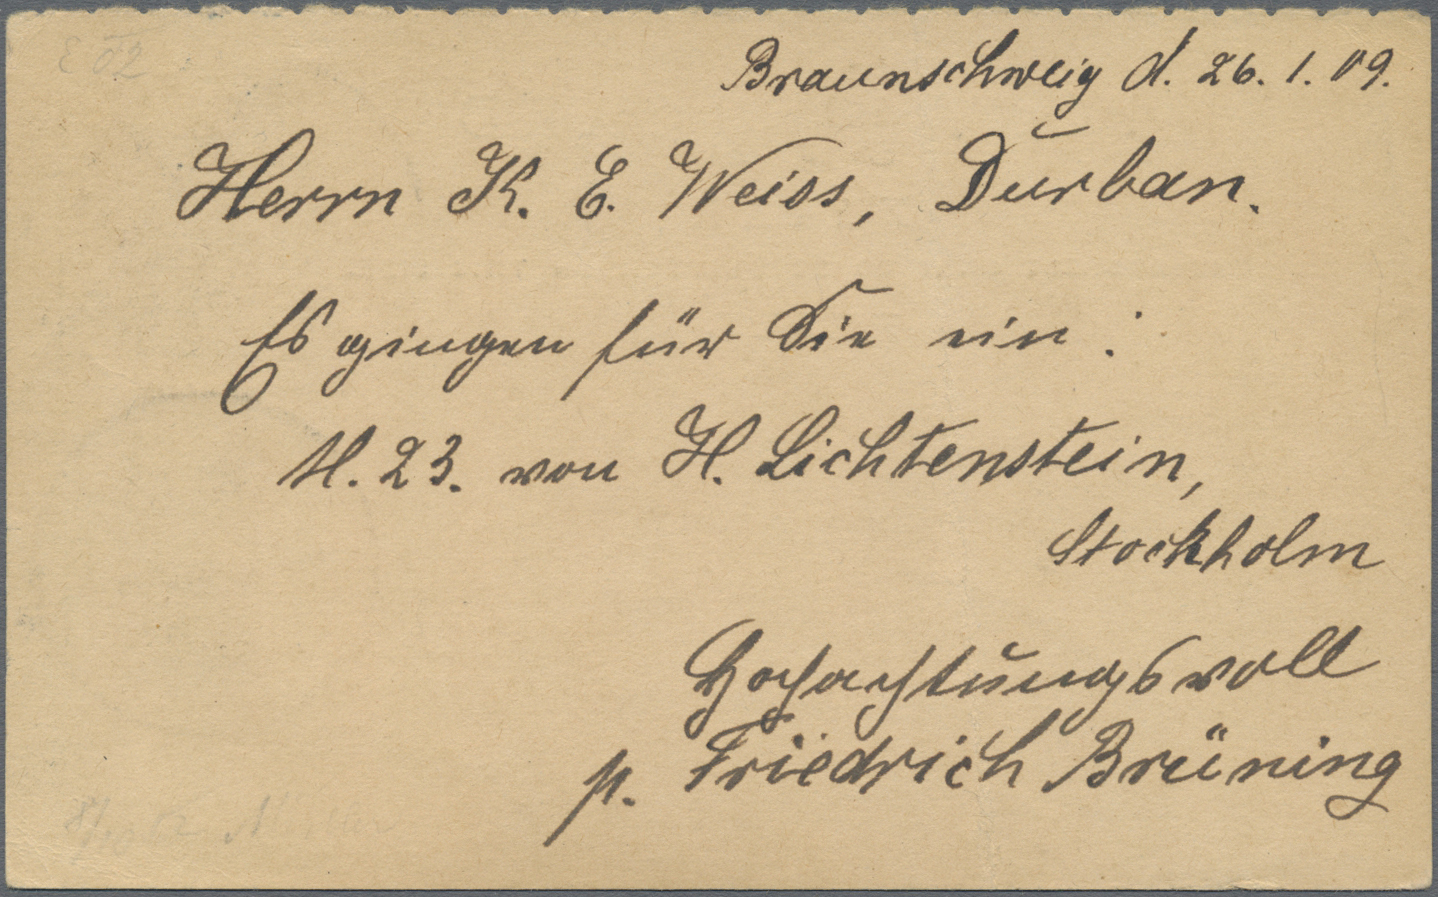 Braunschweig d. 26. 1. 09.
Herrn K. E. Weiss, Durban.
Es gingen für Sie ein :
M. 23. von H. Lichtenstein,
Stockholm
Hochachtungsvoll
p. Friedrich Brüning